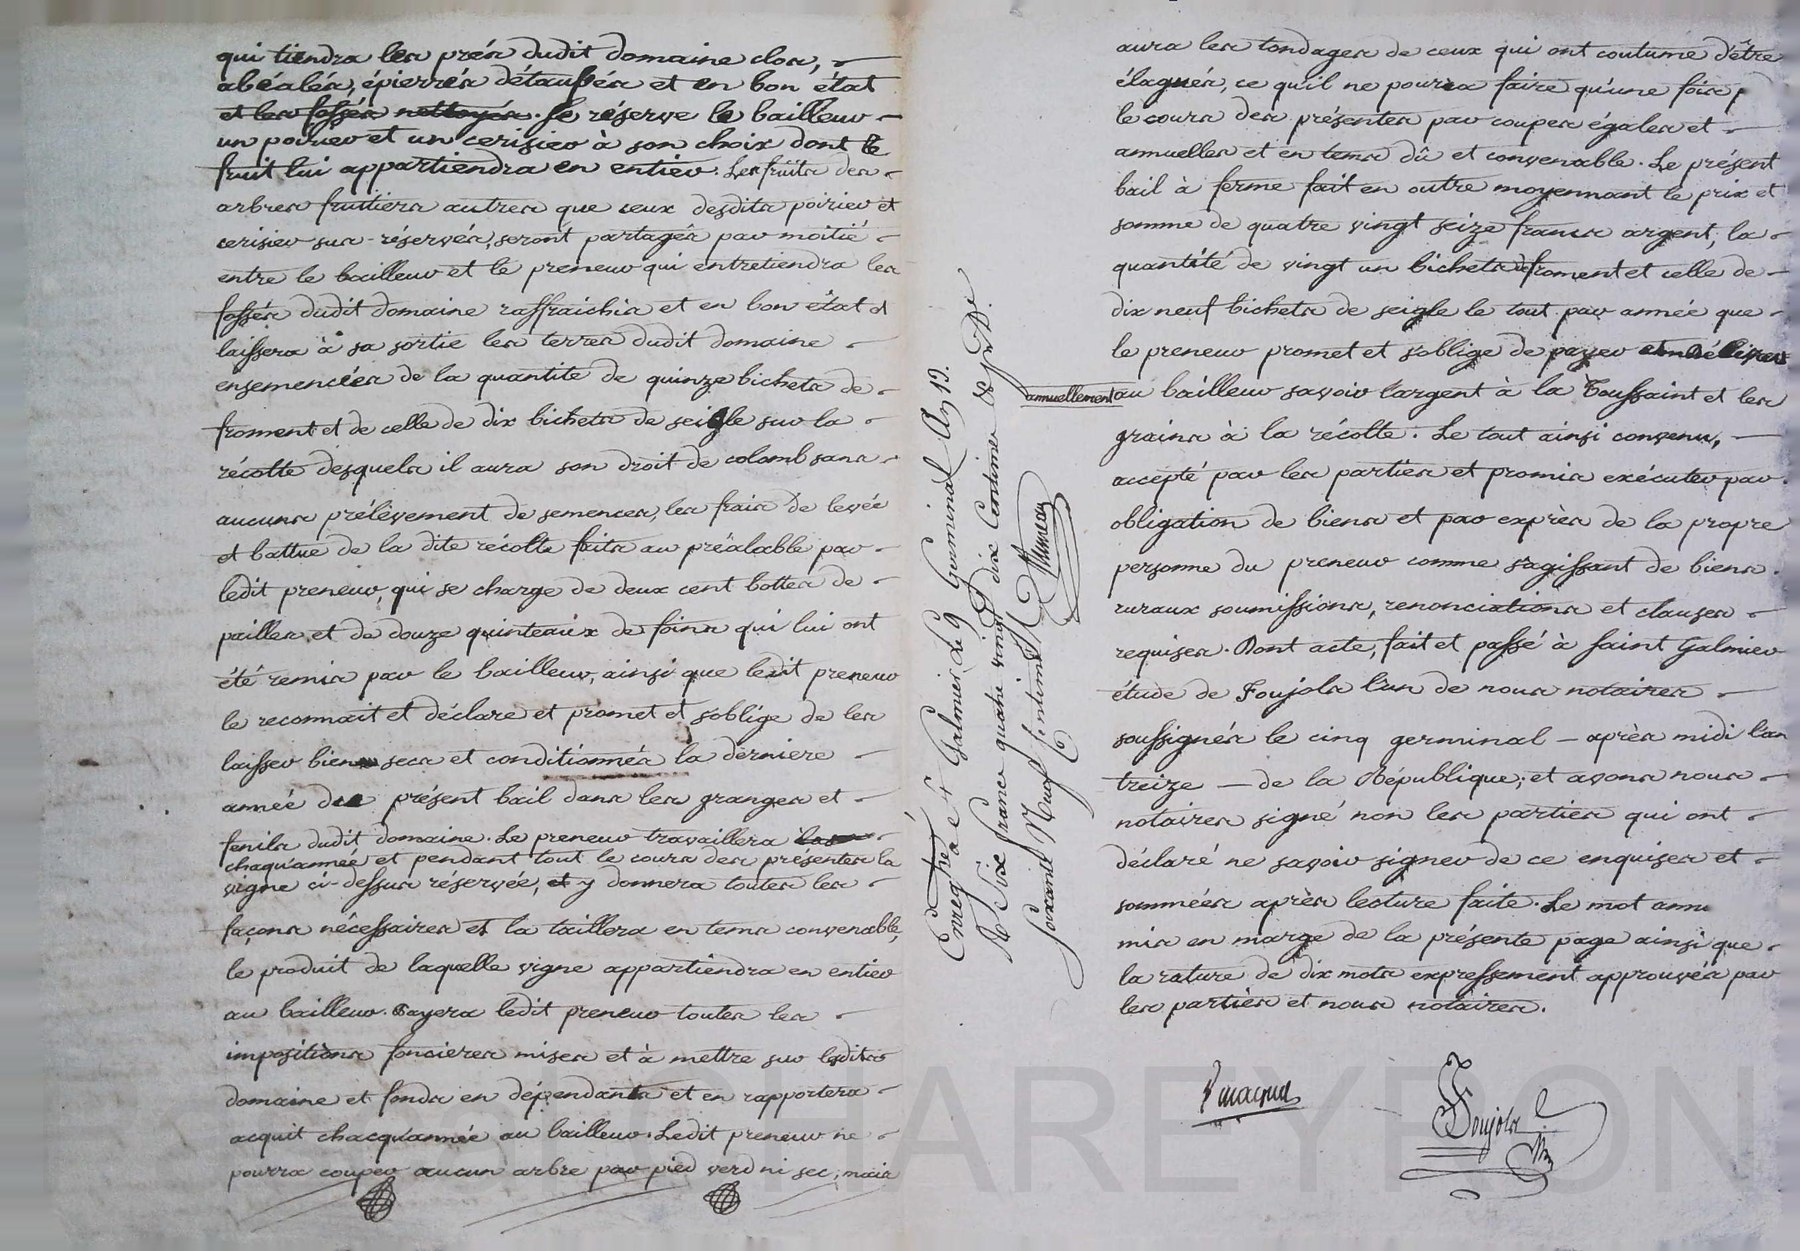 qui tiendra les prés dudit domaine clos,
abéalés, épierrés détaupés et en bon état
et les fossés nettoyés. Se réserve le bailleur
un poirier et un cerisier à son choix dont le
fruit lui appartiendra en entier. Les fruits des
arbres fruitiers autres que ceux desdits poirier et
cerisier sus-réservés, seront partagés par moitié
entre le bailleur et le preneur qui entretiendra les
fossés dudit domaine raffraichis et en bon état et
laissera à sa sortie les terres dudit domaine
ensemencées de la quantité de quinze bichets de
froment et de celle de dix bichets de seigle sur la
récolte desquels il aura son droit de colomb sans
aucuns prélèvement de semences, les frais de levée
et battue de la dite récolte faits au préalable par
ledit preneur, qui se charge de deux cent bottes de
pailles et de douze quinteaux de foins qui lui ont
été remis par le bailleur, ainsi que ledit preneur
le reconnait et déclare et promet et s'oblige de les
laisser bien secs et conditionnés la derniere
année du présent bail dans les granges et
fenils dudit domaine. Le preneur travaillera
chaqu'année et pendant tout le cours des présentes la
vigne ci-dessus réservée, et y donnera toutes les
façons nécessaires et la taillera en tems convenable,
le produit de laquelle vigne appartiendra en entier
au bailleur. Payera ledit preneur toutes les
impositions foncieres mises et à mettre sur lesdits
domaine et fonds en dépendants et en rapportera
acquit chacqu'année au bailleur. Ledit preneur ne
pourra couper aucun arbre par pied verd ni sec, mais
Enregtré à St Galmier Le 9 Germinal An 13.
R Six francs quatre vingt dix Centimes &
soixante Neuf Centimes
aura les tondages de ceux qui ont coutume d'être
élagués, ce qu'il ne pourra faire qu'une fois
le cours des présentes par coupes égales et
annuelles et en tems dû et convenable. Le présent
bail à ferme fait en outre moyennant le prix et
somme de quatre vingt seize francs argent, la
quantité de vingt un bichets de froment et celle de
dix neuf bichets de seigle le tout par année que
le preneur promet et s'oblige de payer
annuellement au bailleur savoir l'argent à la Toussaint et les
grains à la récolte. Le tout ainsi convenu,
accepté par les parties et promis exécuter par
obligation de biens et par exprès de la propre
personne du preneur comme s'agissant de biens
ruraux soumissions, renonciations et clauses
requises. Dont acte, fait et passé à saint Galmier
étude de Foujols l'un de nous notaires
soussignés le cinq germinal — après midi l'an
treize — de la République; et avons nous
notaires signé non les parties qui ont
déclaré ne savoir signer de ce enquises et
sommées après lecture faite. Le mot annu
mis en marge de la présente page ainsi que
la rature de dix mots expressement approuvés par
les parties et nous notaires.
Foujols
CHAREYRON